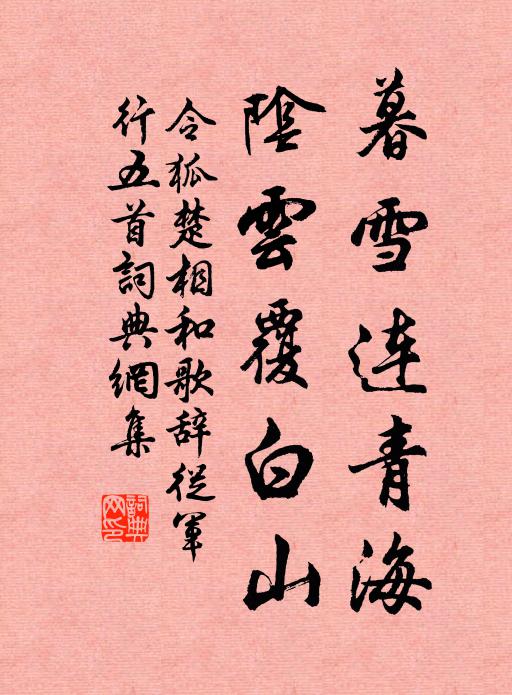 暮雪连青海
陰雲覆白山
令狐楚相和歌辞從軍
行五首詞典網集
詞典
网印